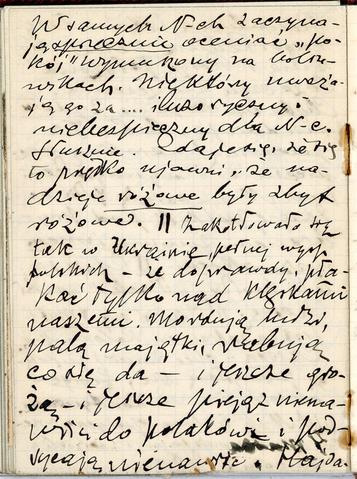 W samych N-ch zaczyna-
ją sprzecznie oceniać „po-
kój” wymuszony na bolsze-
wikach. Niektórzy uważa-
ją go za .... iluzoryczny i
niebezpieczny dla N-c.
Słusznie. Zdaje się, że się
to prędko ujawni, że na-
dzieje różowe były zbyt
różowe. || Zakotłowało się
tak w Ukrainie, pełnej wysp
polskich – że doprawdy, pła-
kać tylko nad klęskami
naszemi. Mordują ludzi,
palą majątki, rabują
co się da – i jeszcze gro-
żą – i jeszcze
do polaków i pod-
sycają nienawiść.